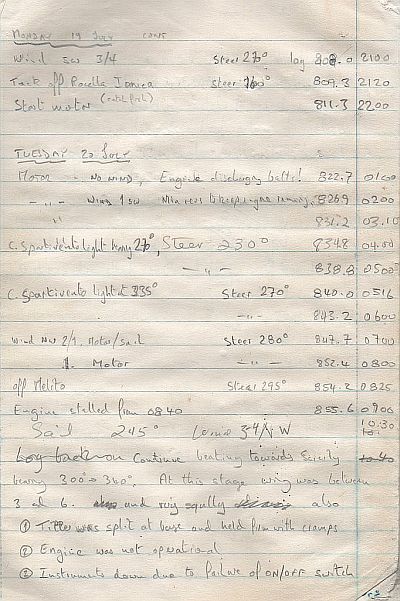 MONDAY 19 JULY CONT
Wind SW 3/4 Steer 270° log 808.0 2100
Tack off Rocella Ionica Steer 160° 809.3 2120
Start motor 811.3 2200
TUESDAY 20 JULY
Motor - NO WIND, Engine discharging batts! 822.7 0100
- " - Wind 1 SW Min revs to keep engine running. 826.9 0200
" 831.2 03.10
C. Spartivento Light bearing 270°, Steer 230° 834.8 04.00
- " - 838.8 0500
C. Spartivento light at 335° Steer 270° 840.0 0516
- " - 843.2 0600
Wind NW 2/1. Motor/sail Steer 280° 847.7 0700
1. Motor - " - 852.4 0800
off Melito Steer 295° 854.2 0825
Engine stalled from 0840 855.6 0900
Sail 245° 3/4 NW 10.30
Log back on Continue beating towards Sicily 10.40
bearing 300° - 340°. At this stage wing was between
3 and 6. and very squally also
① Tiller was split at base and held firm with cramps
② Engine was not operational
③ Instruments down due to failure of ON/OFF switch